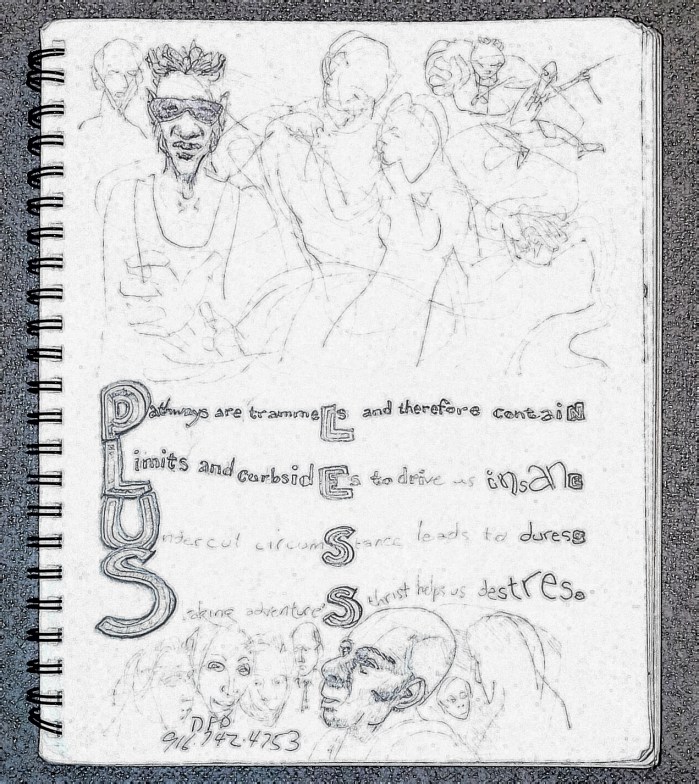 Pathways are trammeLs and therefore contaiN
Limits and curbsidEs to drive us insane
Undercut circumStance leads to duress
Slaking adventure'S thirst helps us destress
DFO
916 742-4753